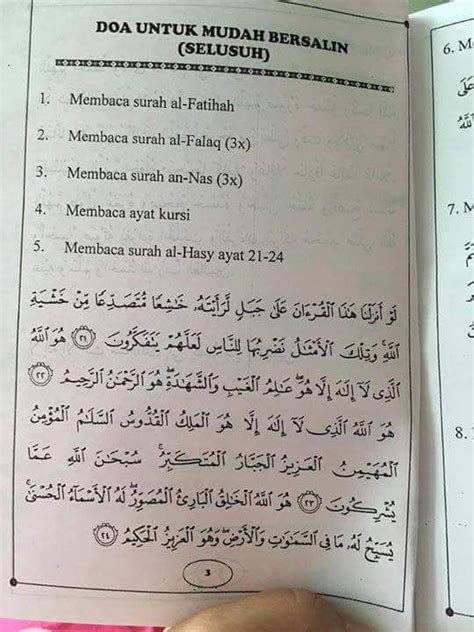 DOA UNTUK MUDAH BERSALIN
(SELUSUH)
1. Membaca surah al-Fatihah
2. Membaca surah al-Falaq (3x)
3. Membaca surah an-Nas (3x)
4. Membaca ayat kursi
5. Membaca surah al-Hasy ayat 21-24
لَوْ أَنزَلْنَا هَٰذَا ٱلْقُرْءَانَ عَلَىٰ جَبَلٍ لَّرَأَيْتَهُۥ خَٰشِعًا مُّتَصَدِّعًا مِّنْ خَشْيَةِ
ٱللَّهِ ۚ وَتِلْكَ ٱلْأَمْثَٰلُ نَضْرِبُهَا لِلنَّاسِ لَعَلَّهُمْ يَتَفَكَّرُونَ ٢١ هُوَ ٱللَّهُ
ٱلَّذِى لَآ إِلَٰهَ إِلَّا هُوَ ۖ عَٰلِمُ ٱلْغَيْبِ وَٱلشَّهَٰدَةِ ۖ هُوَ ٱلرَّحْمَٰنُ ٱلرَّحِيمُ ٢٢
هُوَ ٱللَّهُ ٱلَّذِى لَآ إِلَٰهَ إِلَّا هُوَ ٱلْمَلِكُ ٱلْقُدُّوسُ ٱلسَّلَٰمُ ٱلْمُؤْمِنُ
ٱلْمُهَيْمِنُ ٱلْعَزِيزُ ٱلْجَبَّارُ ٱلْمُتَكَبِّرُ ۚ سُبْحَٰنَ ٱللَّهِ عَمَّا
يُشْرِكُونَ ٢٣ هُوَ ٱللَّهُ ٱلْخَٰلِقُ ٱلْبَارِئُ ٱلْمُصَوِّرُ ۖ لَهُ ٱلْأَسْمَآءُ ٱلْحُسْنَىٰ ۚ
يُسَبِّحُ لَهُۥ مَا فِى ٱلسَّمَٰوَٰتِ وَٱلْأَرْضِ ۖ وَهُوَ ٱلْعَزِيزُ ٱلْحَكِيمُ ٢٤
3
6. M
7. M
8.